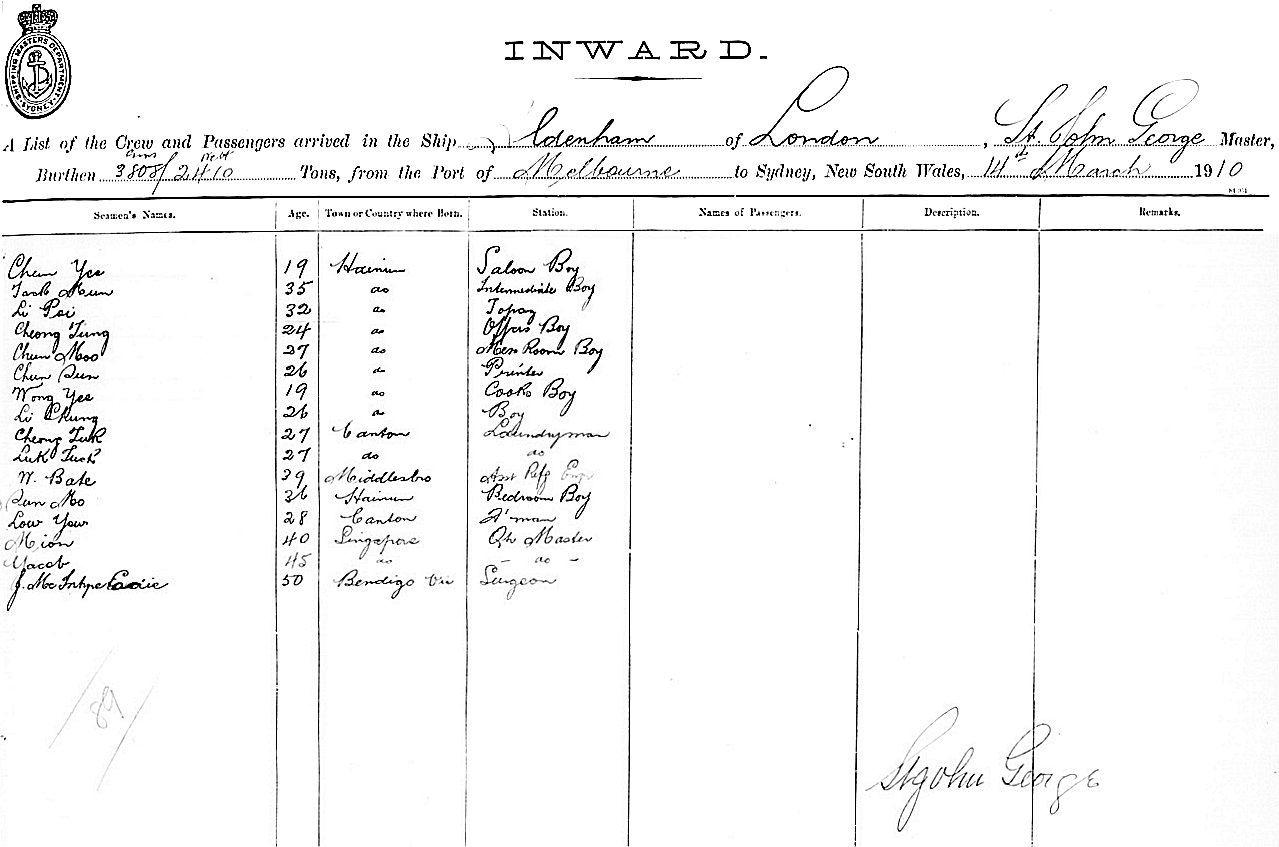 SHIPPING MASTERS DEPARTMENT SYDNEY
INWARD.
A List of the Crew and Passengers arrived in the Ship Aldenham of London, St. John George Master,
Burthen 3808/2410 Tons, from the Port of Melbourne to Sydney, New South Wales, 14th March 1910
Seamen's Names. Age. Town or Country where Born. Station. Names of Passengers. Description. Remarks.
Chun Yee 19 Hainun Saloon Boy
Tack Mun 35 do Intermediate Boy
Li Poi 32 do Topaz
Cheong Tung 24 do Offers Boy
Chun Moo 27 do Mess Room Boy
Chun Sun 26 do Printer
Wong Yee 19 do Cooks Boy
Li Chung 26 do Boy
Cheong Tuk 27 Canton Laundryman
Luk Tuck 27 do do
W. Bate 39 Middlesbro Asst Refg Engr
Sun Mo 36 Hainun Bedroom Boy
Low Yow 28 Canton F'man
Mion 40 Singapore Qr Master
Yacob 45 do - do -
J. McIntyre Eadie 50 Bendigo Vic Surgeon
89
St John George